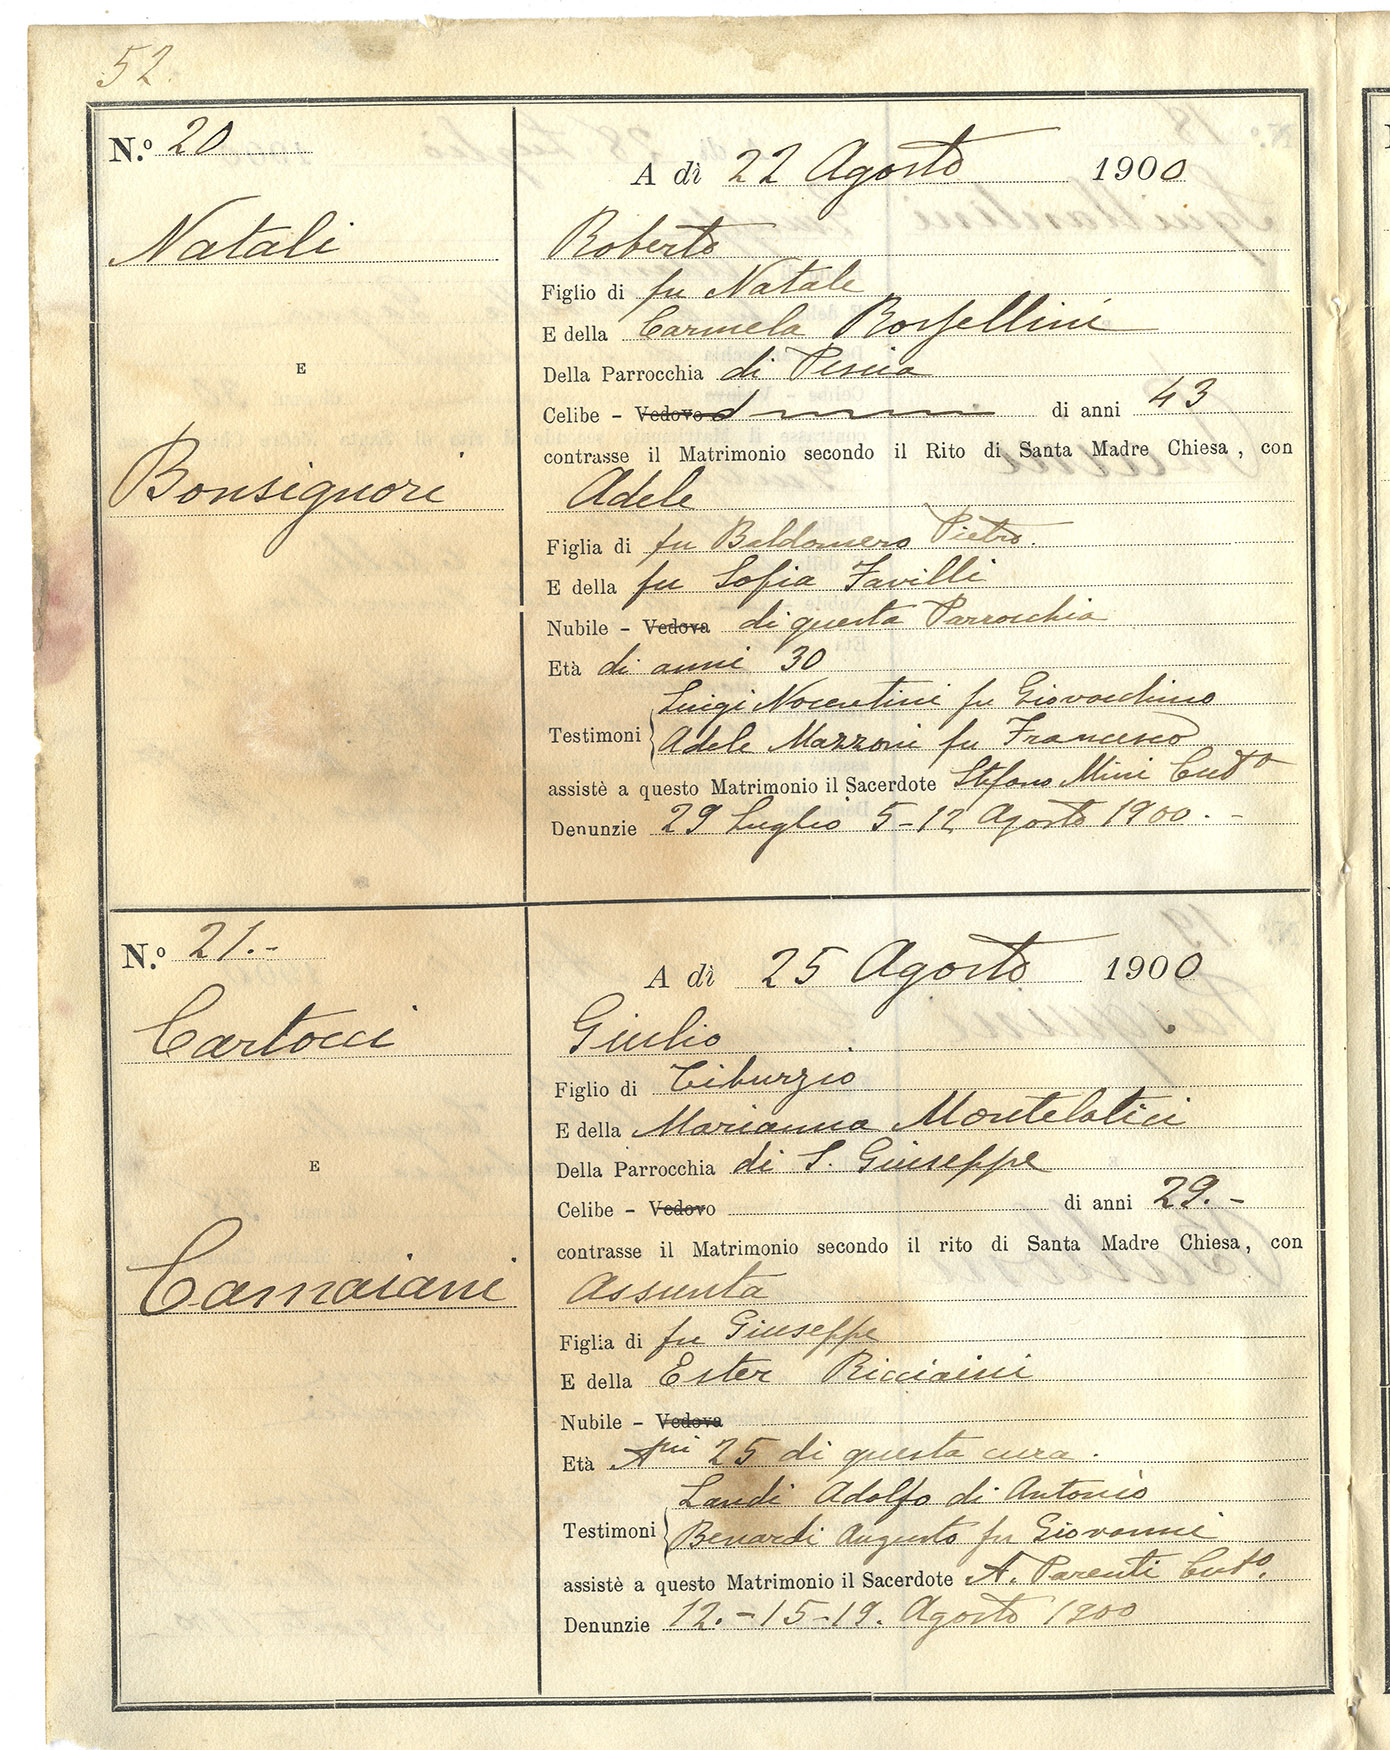 52
N.º 20
A dì 22 Agosto 1900
Natali
Roberto
Figlio di fu Natale
E della Carmela Rosellini
E
Della Parrocchia di Pescia
Celibe - Vedovo di anni 43
contrasse il Matrimonio secondo il Rito di Santa Madre Chiesa, con
Bonsignori
Adele
Figlia di fu Baldomero Pietro.
E della fu Sofia Favilli
Nubile - Vedova di questa Parrocchia
Età di anni 30
Luigi Nocentini fu Giovacchino
Testimoni Adele Mazzoni fu Francesco
assistè a questo Matrimonio il Sacerdote Stefano Mini
Denunzie 29 Luglio 5-12 Agosto 1900. -
N.º 21.-
A dì 25 Agosto 1900
Cartocci
Giulio
Figlio di Tiburzio
E della Marianna Montelatici
E
Della Parrocchia di S. Giuseppe
Celibe - Vedovo di anni 29.-
contrasse il Matrimonio secondo il rito di Santa Madre Chiesa, con
Camaiani
Assunta
Figlia di fu Giuseppe
E della Ester
Nubile - Vedova
Età Ani 25 di questa cura.
Landi Adolfo di Antonio
Testimoni Benardi Augusto fu Giovanni
assistè a questo Matrimonio il Sacerdote A. Parenti
Denunzie 12.-15-19. Agosto 1900